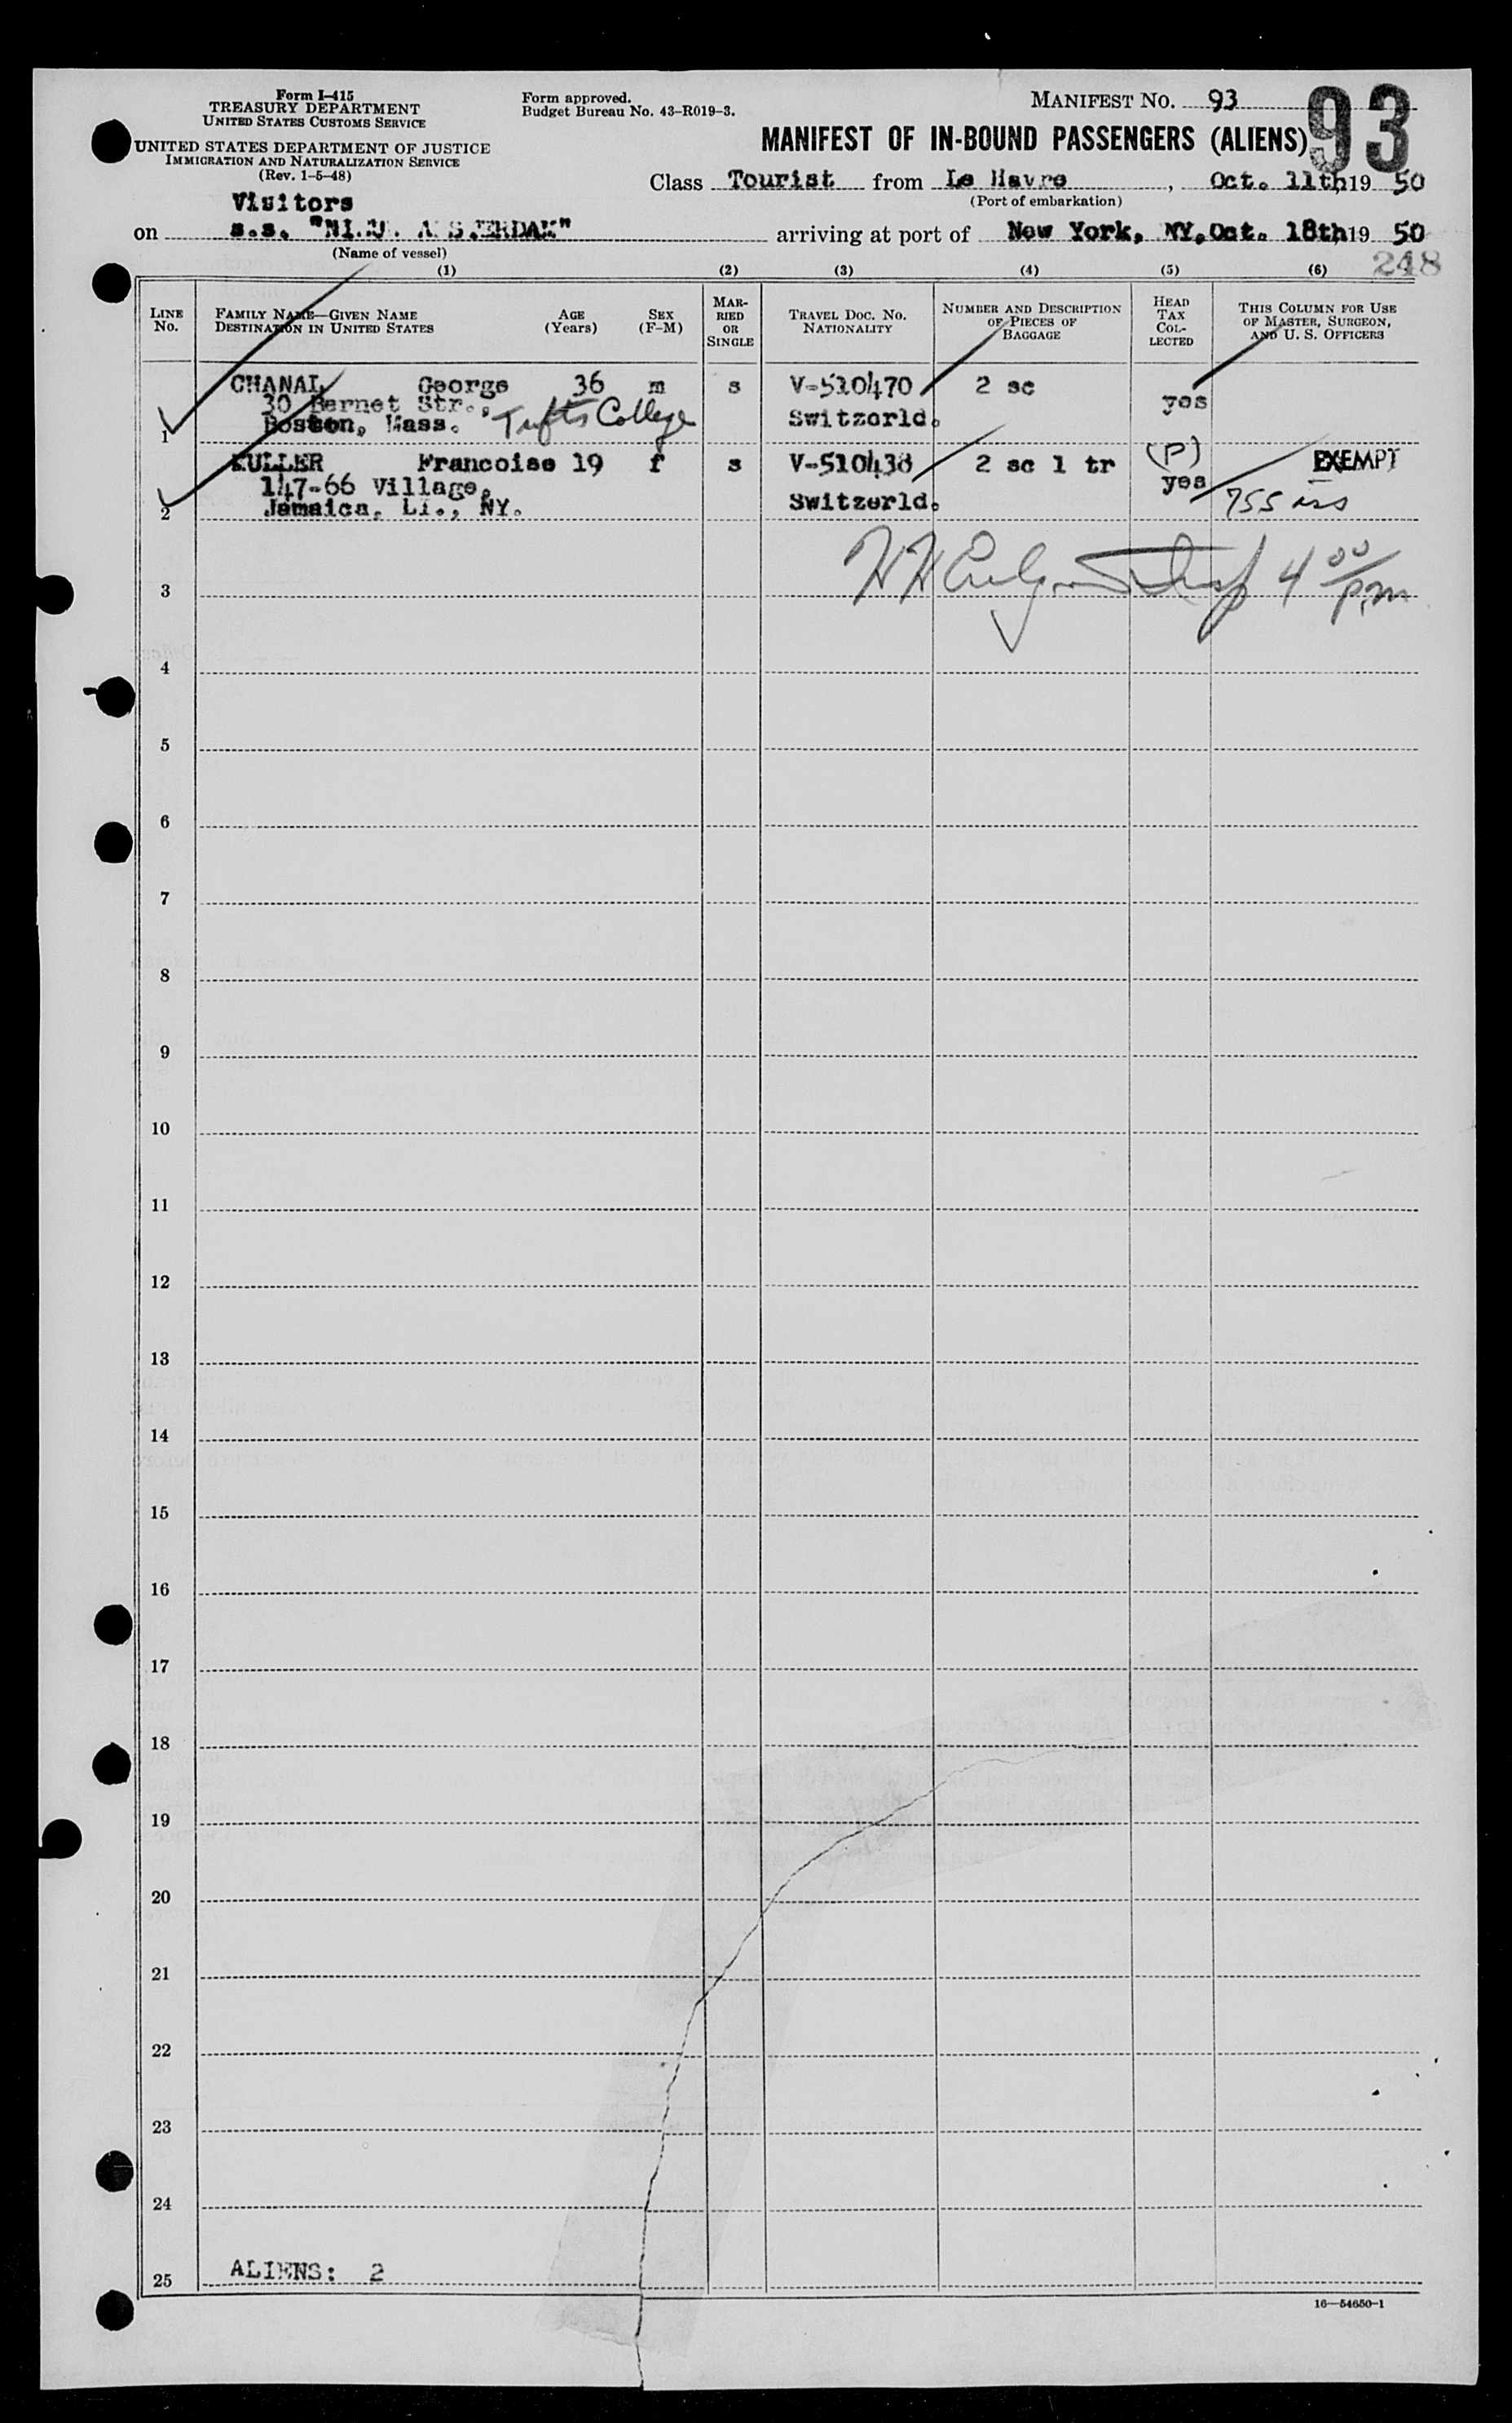 Form I-415
TREASURY DEPARTMENT
UNITED STATES CUSTOMS SERVICE
UNITED STATES DEPARTMENT OF JUSTICE
IMMIGRATION AND NATURALIZATION SERVICE
(Rev. 1-5-48)
Form approved.
Budget Bureau No. 43-R019-3.
MANIFEST NO. 93
93
MANIFEST OF IN-BOUND PASSENGERS (ALIENS)
Class Tourist from Le Havre, Oct. 11th 19 50
(Port of embarkation)
Visitors
on s.s. arriving at port of New York, NY, Oct. 18th 19 50
(Name of vessel)
248
(1) (2) (3) (4) (5) (6)
LINE No.
FAMILY NAME—GIVEN NAME
DESTINATION IN UNITED STATES
AGE (Years)
SEX (F-M)
MAR-RIED OR SINGLE
TRAVEL DOC. NO. NATIONALITY
NUMBER AND DESCRIPTION OF PIECES OF BAGGAGE
HEAD TAX COL-LECTED
THIS COLUMN FOR USE OF MASTER, SURGEON, AND U. S. OFFICERS
CHANAL George 36 m s V-510470 2 sc
30 Bernet Str., yes
1 Boston, Mass. Tufts College Switzerld.
KULLER Francoise 19 f s V-510438 2 sc 1 tr (P) EXEMPT
147-66 Village, yes
2 Jamaica, LI., NY. Switzerld. 755
3 4 00 p.m
4
5
6
7
8
9
10
11
12
13
14
15
16
17
18
19
20
21
22
23
24
25 ALIENS: 2
16—54650-1